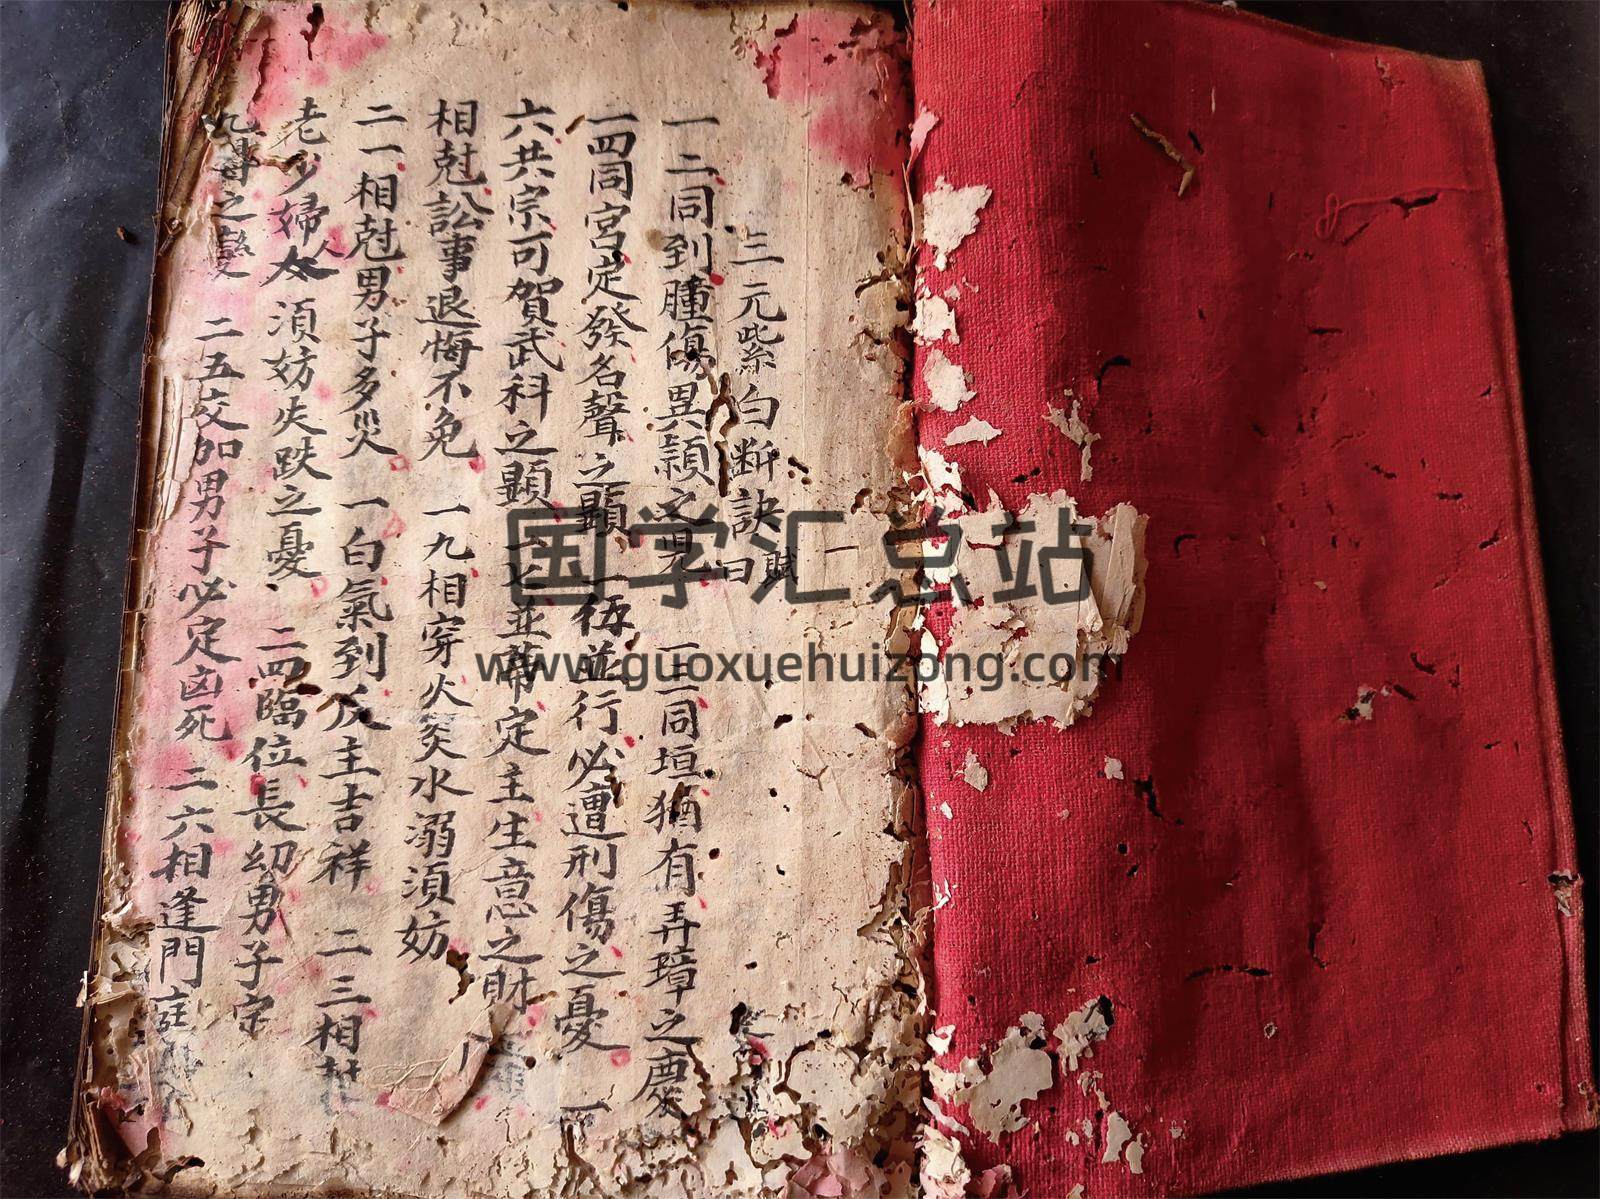 三元紫白断訣賦曰
一二同到腫傷異穎之見 一三同垣猶有弄璋之慶
一四同宮定發名聲之顯 一伍並行必遭刑傷之憂 一
六共宗可賀武科之顯 一七並蒂定主生意之財 一八
相尅訟事退悔不免 一九相穿火災水溺須妨
二一相尅男子多災 一白氣到反主吉祥 二三相尅
老少婦人須妨失跌之憂 二四臨位長幼男子宗
之變 二五交加男子必定凶死 二六相逢門庭
国学汇总站
www.guoxuehuizong.com